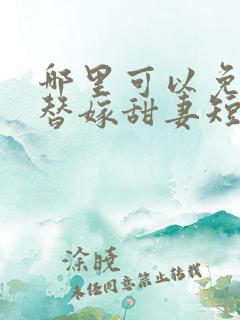 哪里可以免
替嫁甜妻短
涂晓
未经同意禁止转载